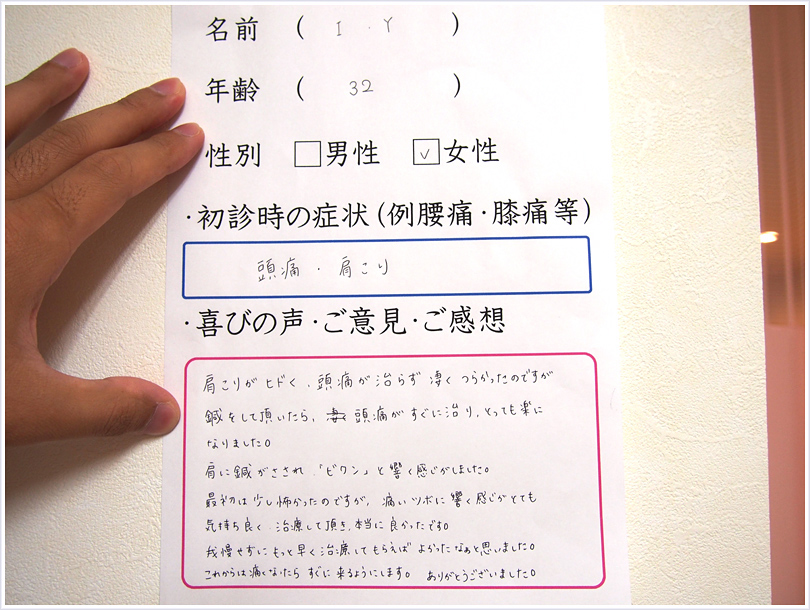 名前 ( I . Y )
年齢 ( 32 )
性別 □男性 ☑女性
・初診時の症状(例腰痛・膝痛等)
頭痛・肩こり
・喜びの声・ご意見・ご感想
肩こりがヒドく、頭痛が治らず凄くつらかったのですが
鍼をして頂いたら、頭痛がすぐに治り、とっても楽に
なりました。
肩に鍼がさされ、「ビクン」と響く感じがしました。
最初は少し怖かったのですが、痛いツボに響く感じがとても
気持ち良く、治療して頂き、本当に良かったです。
我慢せずにもっと早く治療してもらえばよかったなぁと思いました。
これからは痛くなったらすぐに来るようにします。ありがとうございました。